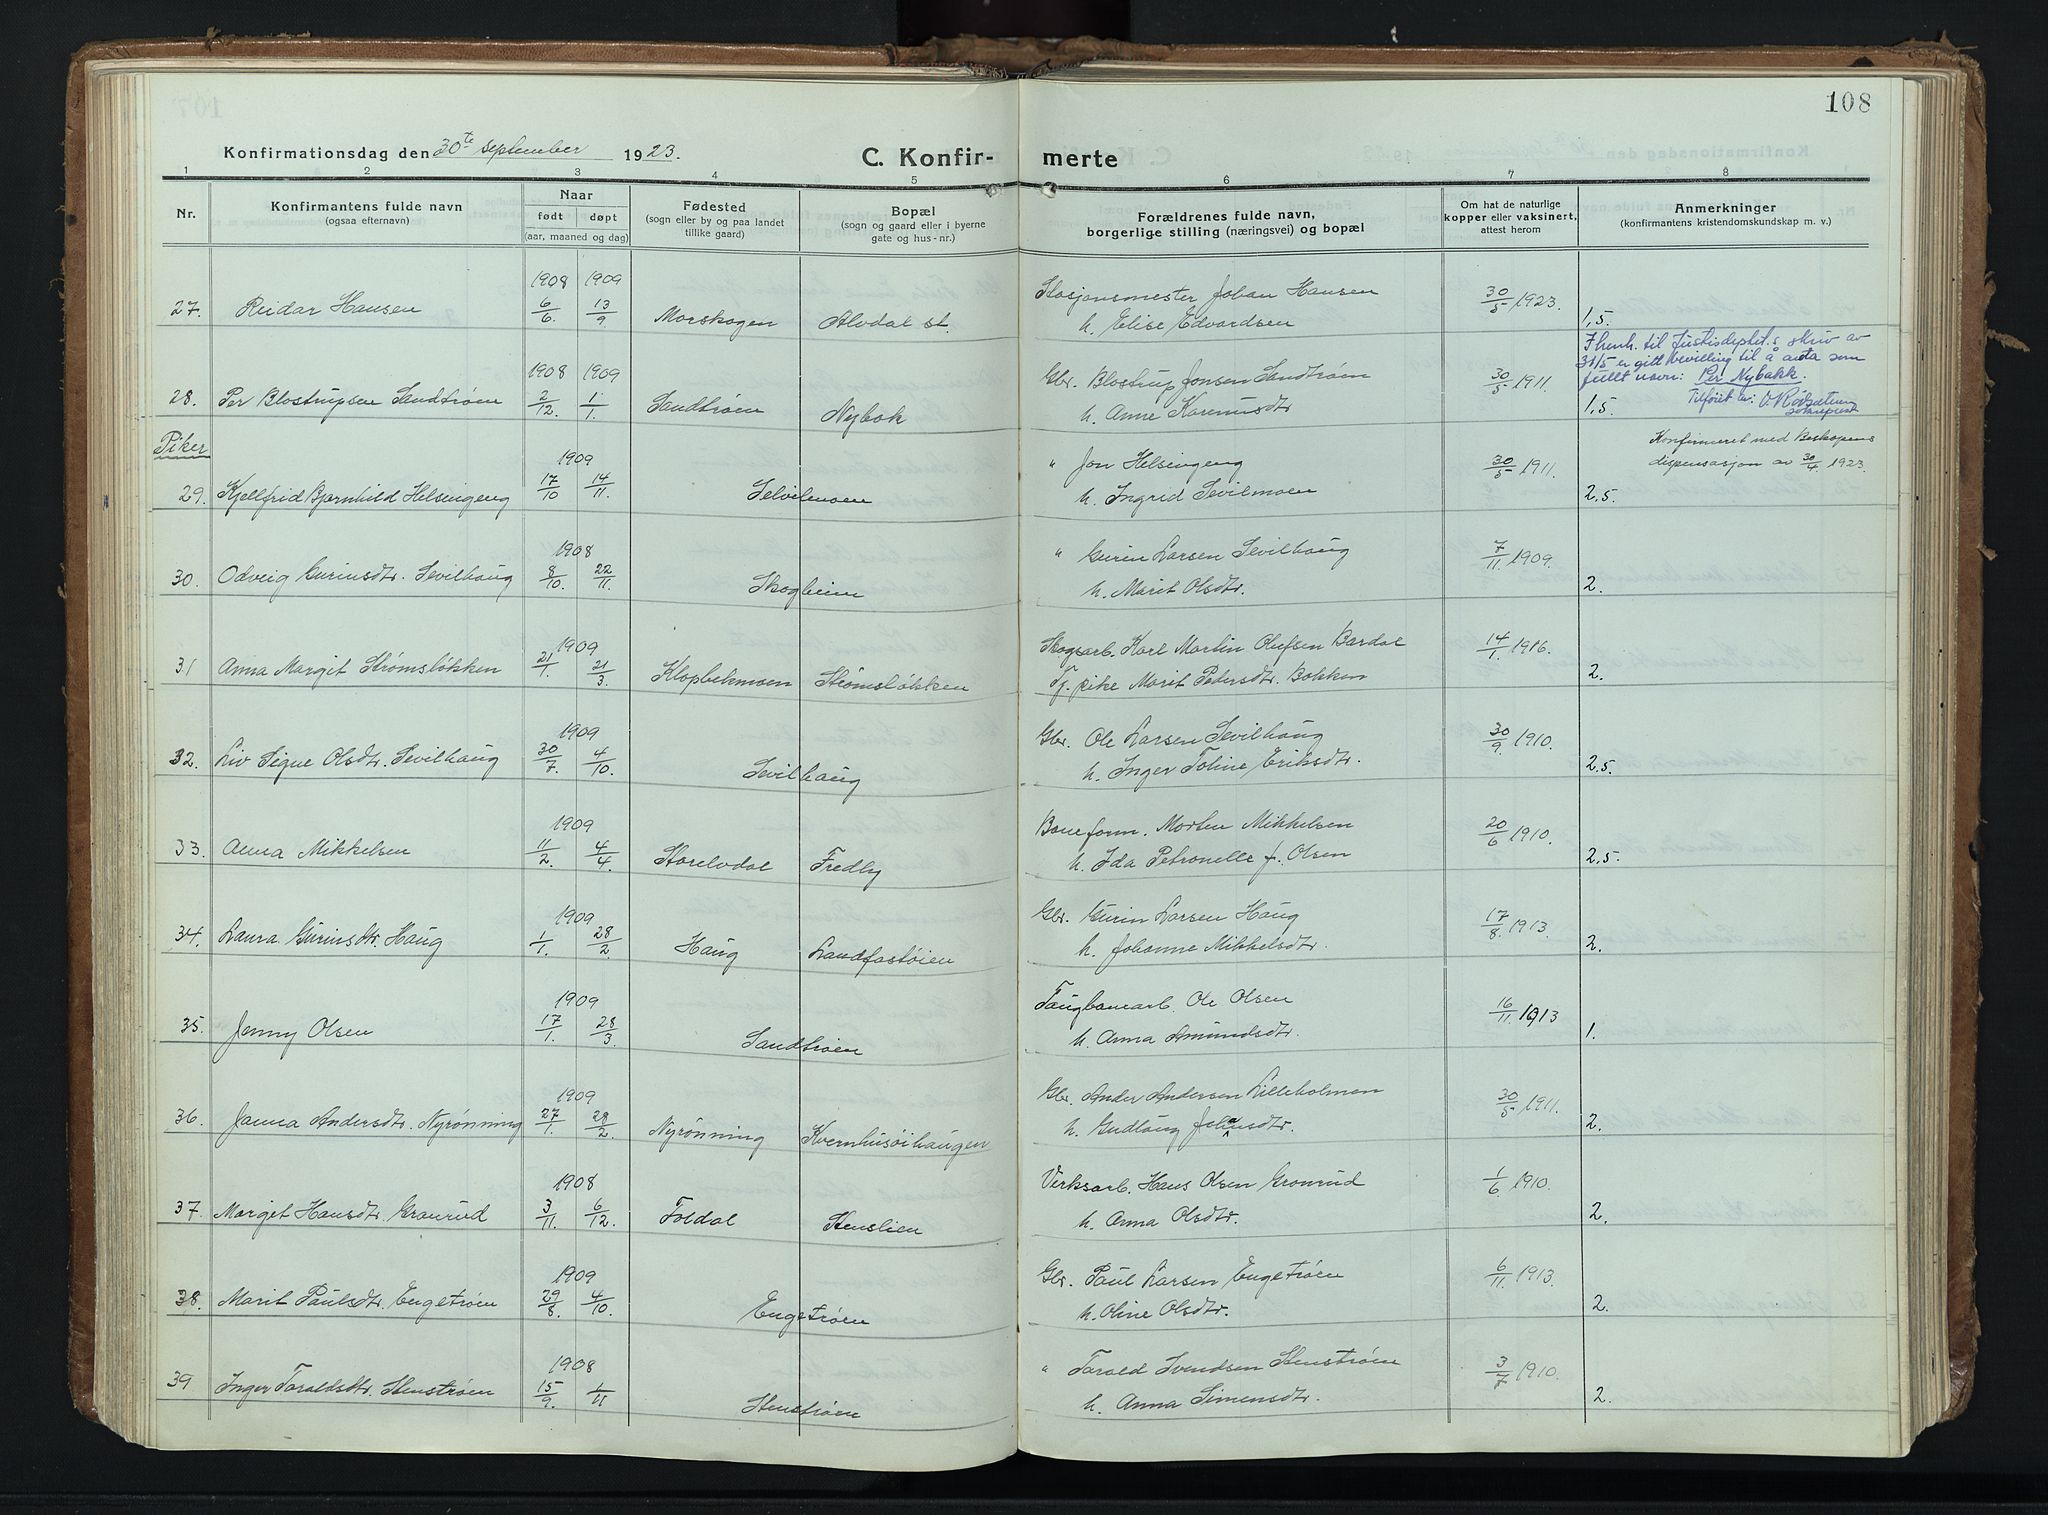 108
Konfirmationsdag den 30te september 1923.
C. Konfir- merte
1 2 3 4 5 6 7 8
Nr.
Konfirmantens fulde navn
(ogsaa efternavn)
Naar
født døpt
(aar, maaned og dag)
Fødested
(sogn eller by og paa landet
tillike gaard)
Bopæl
(sogn og gaard eller i byerne
gate og hus-nr.)
Forældrenes fulde navn,
borgerlige stilling (næringsvei) og bopæl
Om hat de naturlige
kopper eller vaksinert,
attest herom
Anmerkninger
(konfirmantens kristendomskundskap m. v.)
1908 1909
27. Reidar Hansen 6/6. 13/9 Morskogen Alvdal st. Stasjonsmester Johan Hansen 30/5 1923. 1,5.
h. Elise Edvardsen
1908 1909
28. Per Blostrupsen Sandtrøen 2/12. 1/1. Sandtrøen Nybak Gbr. Blostrup Jonsen Sandtrøen 30/5 1911. 1,5.
h. Anne Karenusdtr
I henh. til Justisdeptet.s skriv av
31/5 er gitt bevilling til å anta som
fullt navn: Per Nybakk.
Tilføiet av: O. Røisætung
sokneprest
Piker
1909
29. Kjellfrid Bjørnhild Helsingeng 17/10 14/11. Selvilmoen " Jon Helsingeng 30/5 1911. 2,5.
h. Ingrid Sevilmoen
Konfirmeret med Biskopens
dispensasjon av 30/4. 1923.
1908
30. Odveig Gurinsdtr. Sevilhaug 8/10. 22/11. Skogheim " Gurin Larsen Sevilhaug 7/11 1909. 2.
h. Marit Olsdtr.
1909
31 Anna Margit Strømsløkken 21/1. 21/3. Klopbekmoen Strømsløkken Skogsarb. Karl Martin Olufsen Bardal 14/1. 1916. 2.
Tj. pike Marit Pedersdtr. Bakken
1909
32. Liv Signe Olsdtr. Sevilhaug 30/7. 4/10. Sevilhaug Gbr. Ole Larsen Sevilhaug 30/9. 1910. 2,5.
h. Inger Toline Eriksdtr.
1909
33. Anna Mikkelsen 11/2. 4/4. Storelvdal Fredly Baneform. Morten Mikkelsen 20/6 1910. 2,5.
h. Ida Petronelle f. Olsen
1909
34. Laura Gurinsdtr. Haug 1/1. 28/2 Haug Landfastøien Gbr. Gurin Larsen Haug 17/8. 1913. 2.
h. Johanne Mikkelsdtr.
1909
35. Jenny Olsen 17/1. 28/3. Sandtrøen Taugbanearb. Ole Olsen 16/11. 1913 1.
h. Anna Amundsdtr.
1909
36. Janna Andersdtr. Nyrønning 27/1. 28/2. Nyrønning Kvernhusøihaugen Gbr. Ander Andersen Lilleholmen 30/5 1911. 2.
h. Gudlaug Johansdtr.
1908
37. Margit Hansdtr. Granrud 3/11. 6/12. Foldal Stenslien Verksarb. Hans Olsen Granrud 1/6 1910. 2.
h. Anna Olsdtr.
1909
38. Marit Paulsdtr. Engetrøen 29/8. 4/10. Engetrøen Gbr. Paul Larsen Engetrøen 6/11. 1913. 2.
h. Oline Olsdtr.
1908
39 Inger Taraldsdtr. Stenstrøen 15/9. 1/11 Stenstrøen " Tarald Svendsen Stenstrøen 3/7 1910. 2.
h. Anna Simensdtr.